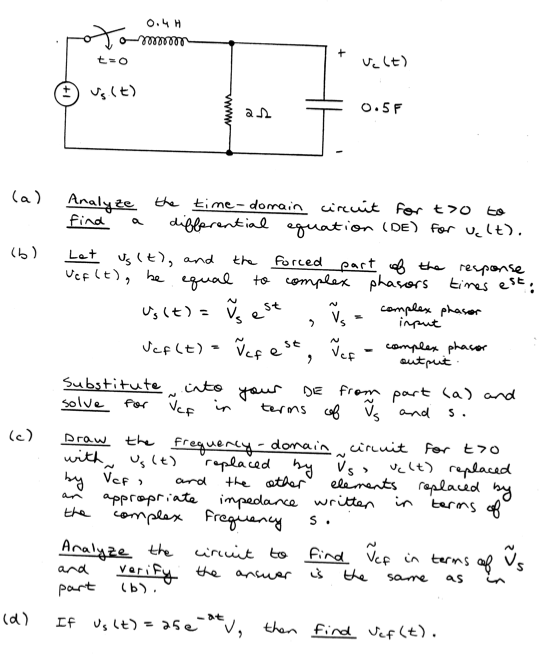 0.4 H
t=0
+
v_c(t)
v_s(t)
2Ω
0.5F
-
(a) Analyze the time-domain circuit for t>0 to
find a differential equation (DE) for v_c(t).
(b) Let v_s(t), and the forced part of the response
v_cf(t), be equal to complex phasors times e^st:
v_s(t) = Ṽ_s e^st , Ṽ_s = complex phasor
input
v_cf(t) = Ṽ_cf e^st , Ṽ_cf = complex phasor
output.
Substitute into your DE from part (a) and
solve for Ṽ_cf in terms of Ṽ_s and s.
(c) Draw the frequency-domain circuit for t>0
with v_s(t) replaced by Ṽ_s, v_c(t) replaced
by Ṽ_cf, and the other elements replaced by
an appropriate impedance written in terms of
the complex frequency s.
Analyze the circuit to find Ṽ_cf in terms of Ṽ_s
and verify the answer is the same as in
part (b).
(d) If v_s(t) = 25e^-2t V, then find v_cf(t).